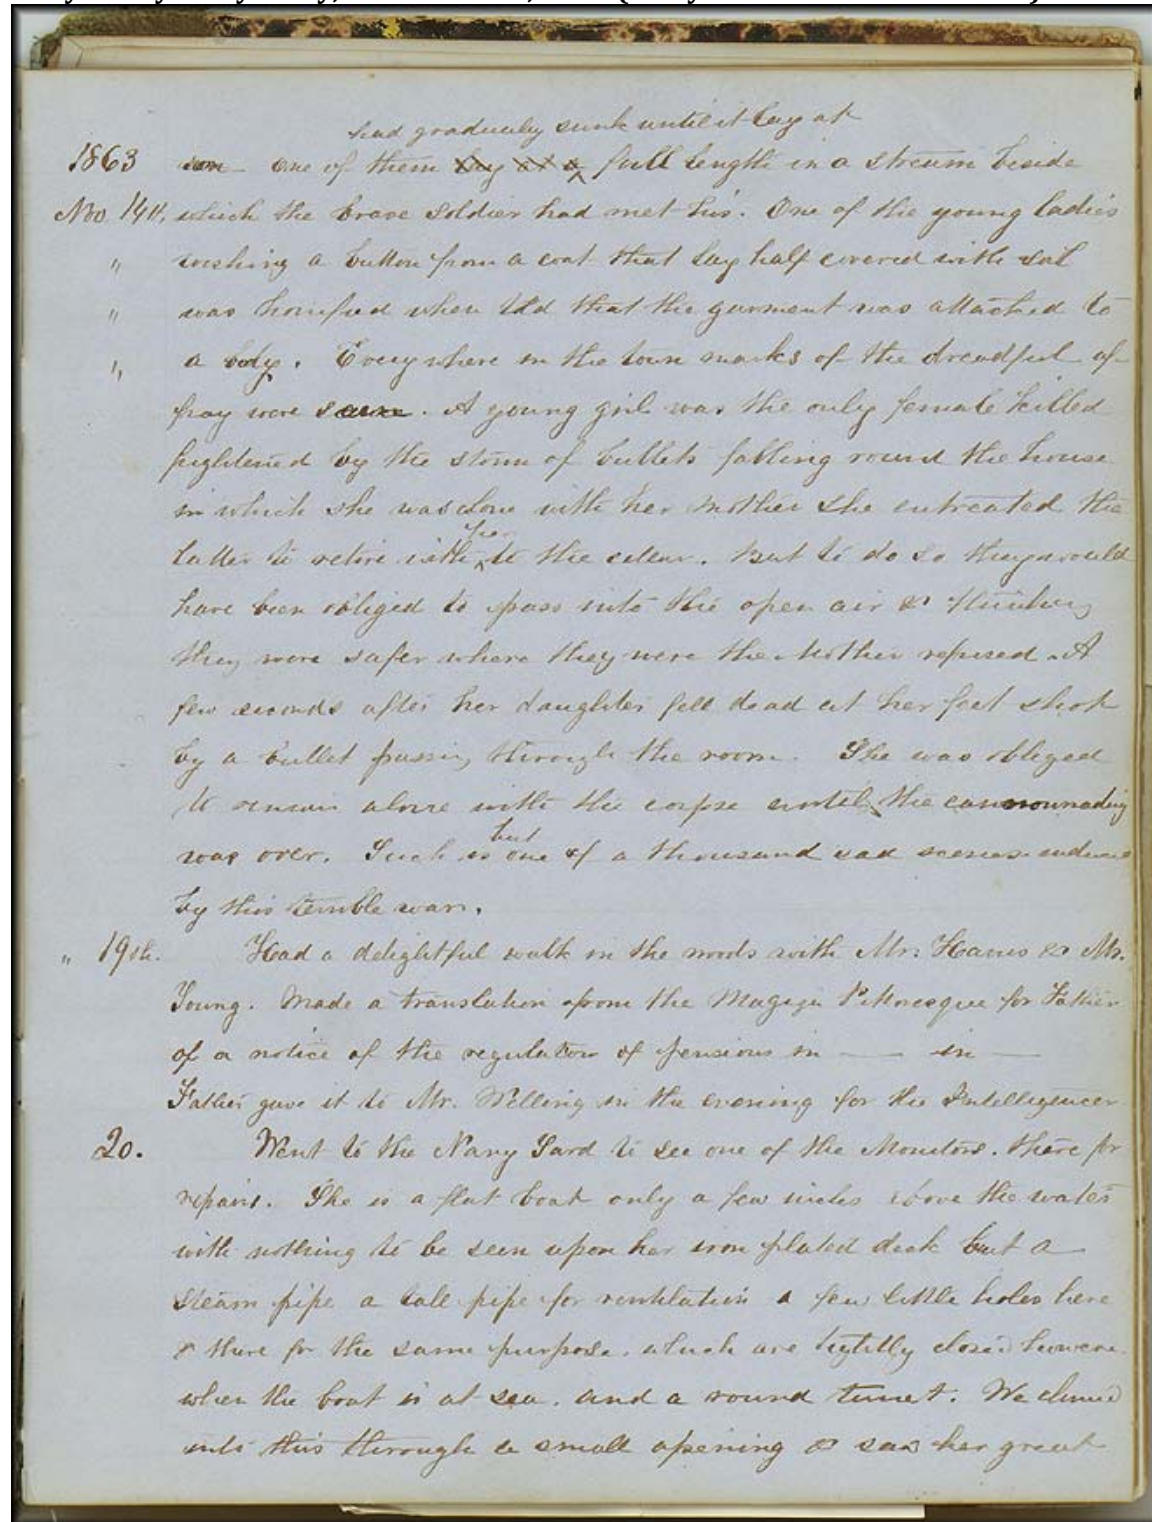 had gradually sunk until it lay at
1863 one of them lay at a full length in a stream beside
Nov 14th, which the brave soldier had met his. One of the young ladies
" wishing a button from a coat that lay half covered with soil
" was horrified when told that the garment was attached to
" a body. Everywhere in the town marks of the dreadful af-
fray were seen. A young girl was the only female killed
frightened by the storm of bullets falling round the house
in which she was alone with her mother she entreated the
her
latter to retire with to the cellar. But to do so they would
have been obliged to pass into the open air & thinking
they were safer where they were the Mother refused. A
few seconds after her daughter fell dead at her feet shot
by a bullet passing through the room. She was obliged
to remain alone with the corpse until the cannonading
but
was over. Such is one of a thousand sad scenes
by this terrible war.
" 19th. Had a delightful walk in the woods with Mr. & Mr.
Young. Made a translation from the Magazin Pittoresque for Father
of a notice of the regulation of pensions in — in —
Father gave it to Mr. Welling in the evening for the Intelligencer
20. Went to the Navy Yard to see one of the Monitors. there for
repairs. She is a flat boat only a few inches above the water
with nothing to be seen upon her iron plated deck but a
steam pipe a tall pipe for ventilation a few little holes here
& there for the same purpose. which are tightly closed however
when the boat is at sea. and a round turret. We climed
into this through a small opening & saw her great